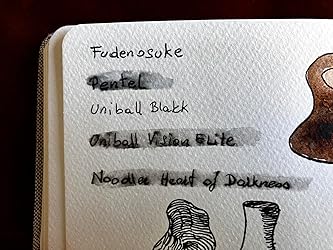 Fudenosuke
Pentel
Uniball Blakk
Uniball Vision Elite
Noodler Heart of Darkness